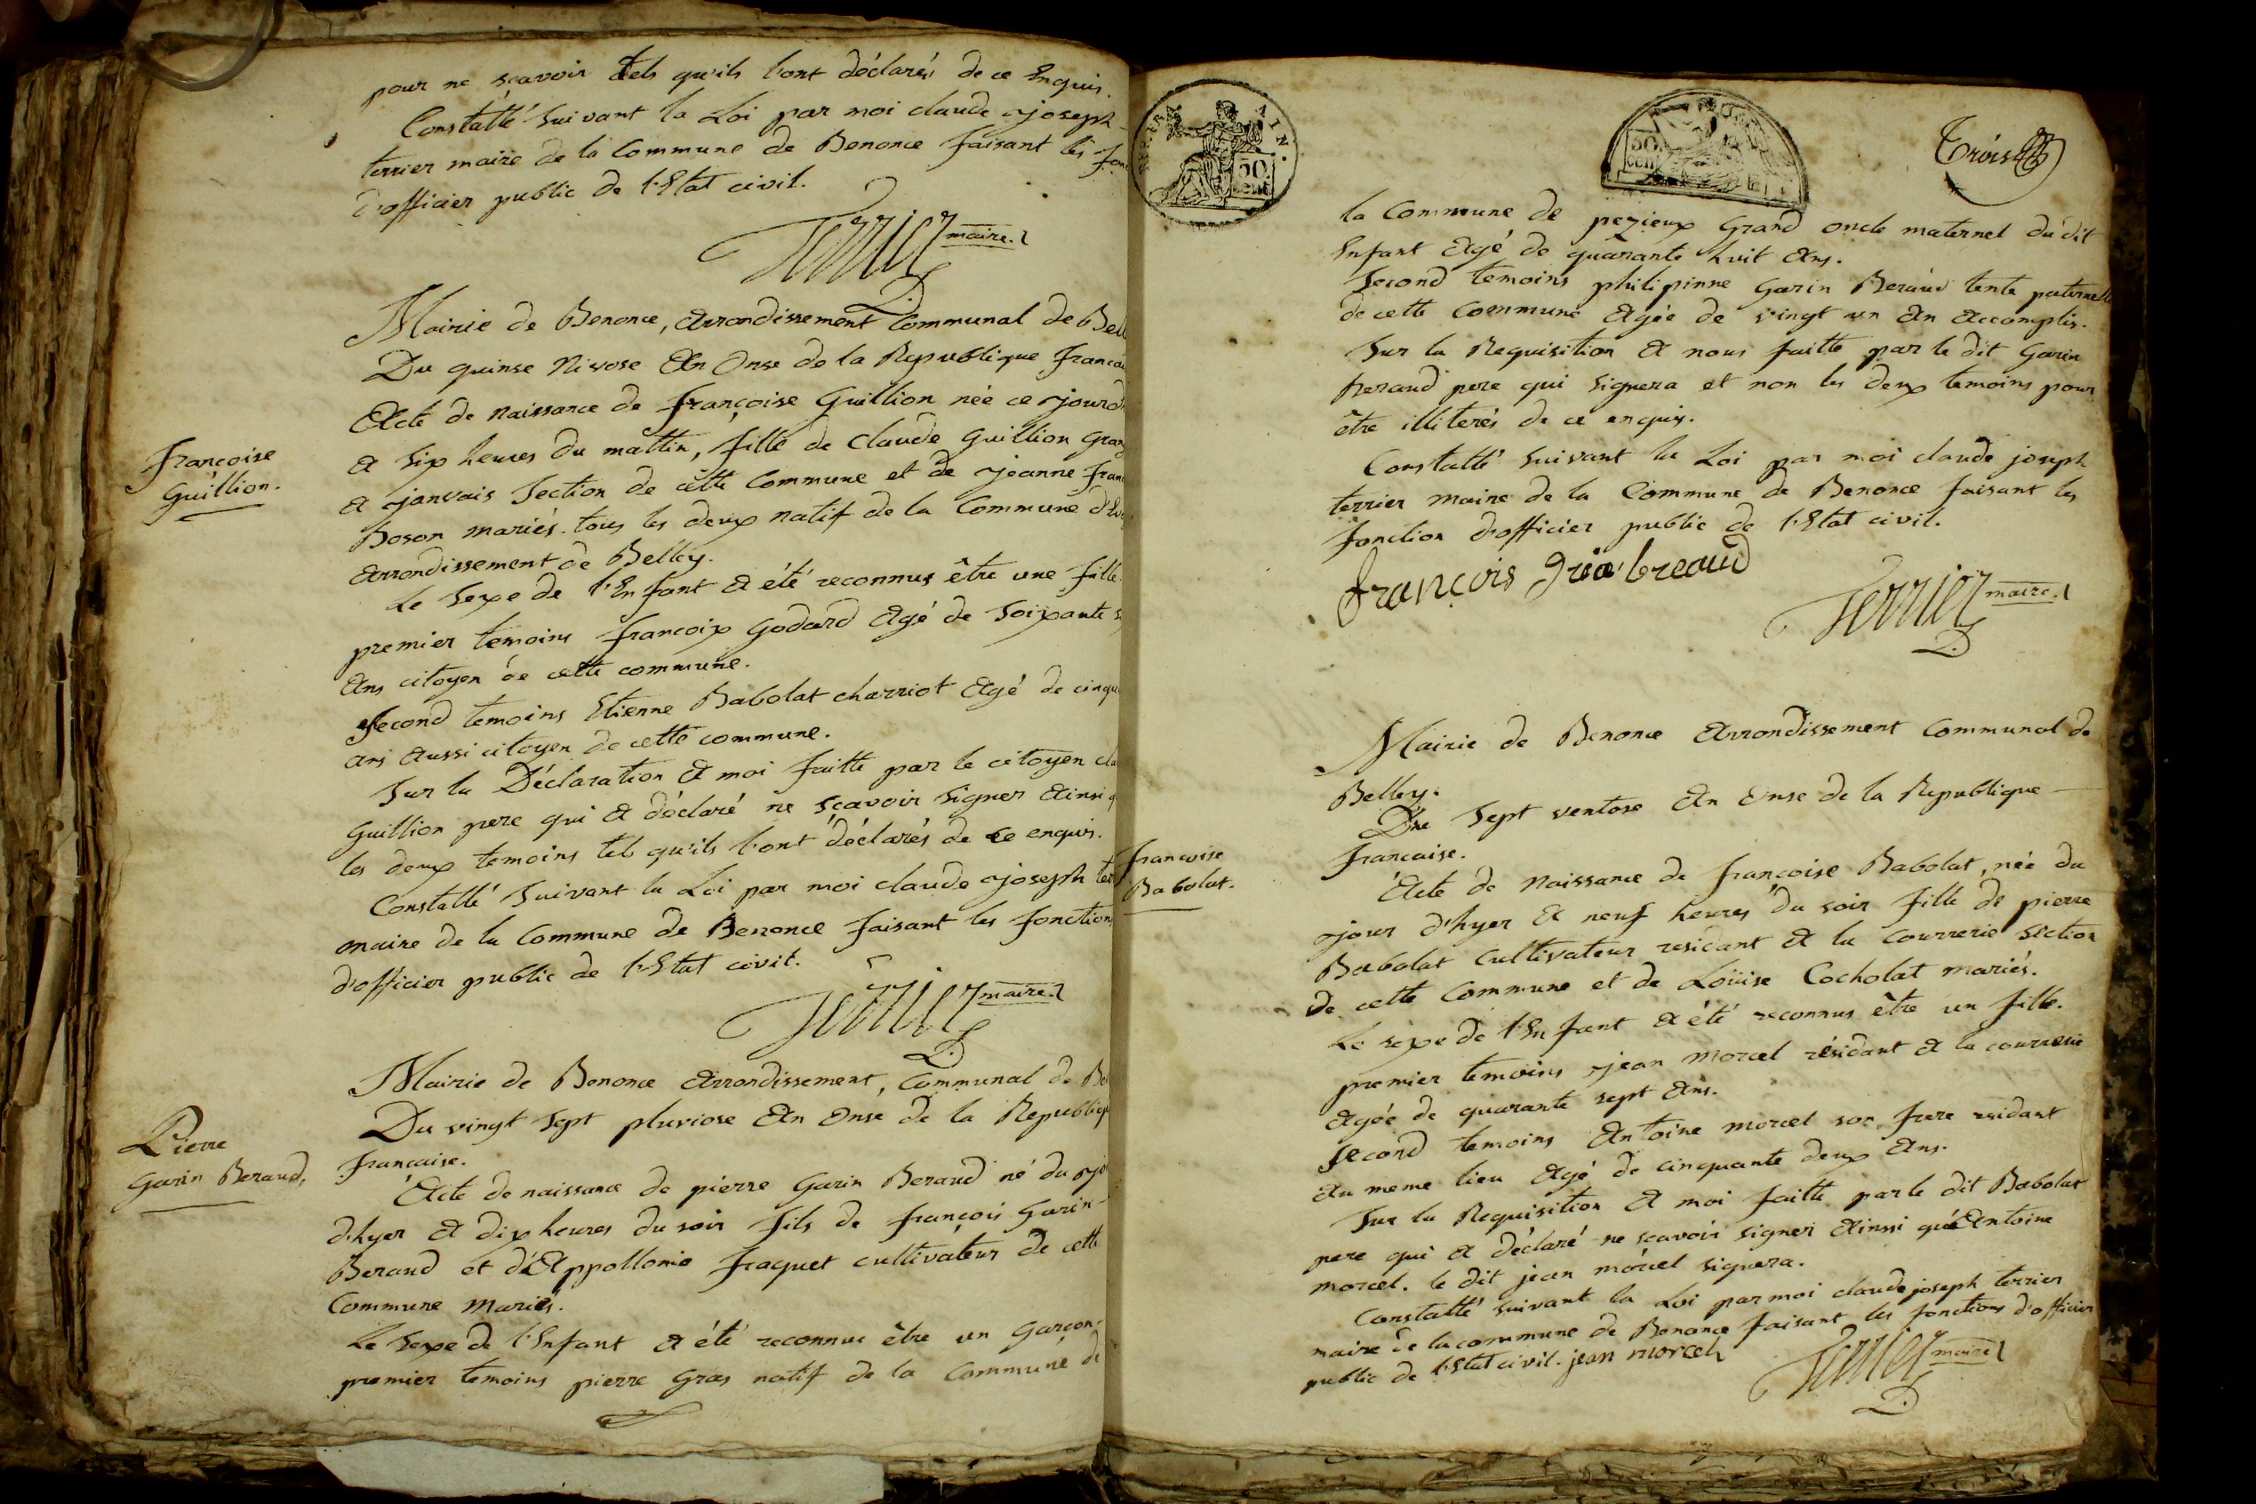 pour ne sçavoir tels qu'ils l'ont déclarés de ce Enquis.
Constatté suivant la Loi par moi claude joseph
terrier maire de la Commune de Benonce faisant les
d'officier public de l'Etat civil.
Terrier maire
Mairie de Benonce, arrondissement Communal de
Du quinse Nivose An Onse de la Republique
Acte de Naissance de françoise Guillion née ce
Françoise
Guillion.
a six heures du mattin, fille de Claude Guillion
a janvais Section de cette Commune et de jeanne
Boson mariés. tous les deux natif de la Commune
arrondissement de Belley.
Le Sexe de l'Enfant a été reconnus être une fille.
premier temoins françoix Godard Agé de Soixante
Ans citoyen de cette commune.
Second temoins Etienne Babolat charriot Agé de
ans aussi citoyen de cette commune.
Sur la Déclaration a moi faitte par le citoyen
Guillion pere qui a déclaré ne sçavoir signer Ainsi
les deux temoins tel qu'ils l'ont déclarés de ce enquis.
Constatté Suivant la Loi par moi claude joseph
maire de la Commune de Benonce faisant les fonction
d'officier public de l'Etat civil.
Terrier maire
Mairie de Benonce arrondissement, Communal de
Du vingt sept pluviose An Onse de la
Pierre
Garin Beraud.
francaise.
Acte de naissance de pierre Garin Beraud né du
d'hyer a dix heures du soir fils de françois Garin-
Beraud et d'Appollonie fraquet cultivateur de cette
Commune mariés.
Le Sexe de l'Enfant a été reconnus être un Garçon.
premier temoins pierre Gras natif de la Commune de
AIN.
50
cent
50
cen
Trois
la Commune de pezieux Grand oncle maternel du dit
Enfant Agé de quarante huit Ans.
Second temoins philipinne Garin Beraud tente
de cette Commune Agée de vingt un An Accomplis.
Sur la Requisition a nous faitte par le dit Garin
beraud pere qui signera et non les deux temoins pour
être illiterés de ce enquis.
Constatté Suivant la Loi par moi claude joseph
terrier maire de la Commune de Benonce faisant les
fonction d'officier public de l'Etat civil.
françois
Terrier maire
Mairie de Benonce Arrondissement Communal de
Belley.
Du Sept ventose An Onse de la Republique
francaise.
francoise
Babolat.
Acte de Naissance de françoise Babolat, née du
jour d'hyer a neuf heures du soir fille de pierre
Babolat Cultivateur residant a la Courrerie Section
de cette Commune et de Loüise Cocholat mariés.
Le sexe de l'Enfant a été reconnus être un fille.
premier temoins jean morcel résidant a la courrerie
agée de quarante sept Ans.
second temoins Antoine morcel son frere residant
Au meme lieu Agé de cinquante deux Ans.
Sur la Requisition a moi faitte par le dit Babolat
pere qui a déclaré ne sçavoir signer Ainssi qu'Antoine
morcel. le dit jean morcel signera.
Constatté suivant la Loi par moi claude joseph terrier
maire de la commune de Benonce faisant les fonctions d'officier
public de l'Etat civil. jean morcel
Terrier maire